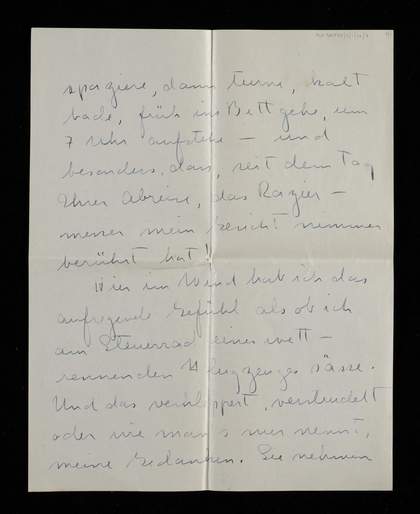 spaziere, dann turne, kalt
bade, früh ins Bett gehe, um
7 Uhr aufstehe – und
besonders, dass, seit dem Tag
Ihrer Abreise, das Rasier-
messer mein Gesicht nimmer
berührt hat!
Hier im Wind hab ich das
aufregende Gefühl als ob ich
am Steuerrad eines wett-
rennenden Flugzeuges sässe.
Und das verschleppert, verstudelt
oder wie man's nur nennt,
meine Gedanken. Sie nehmen